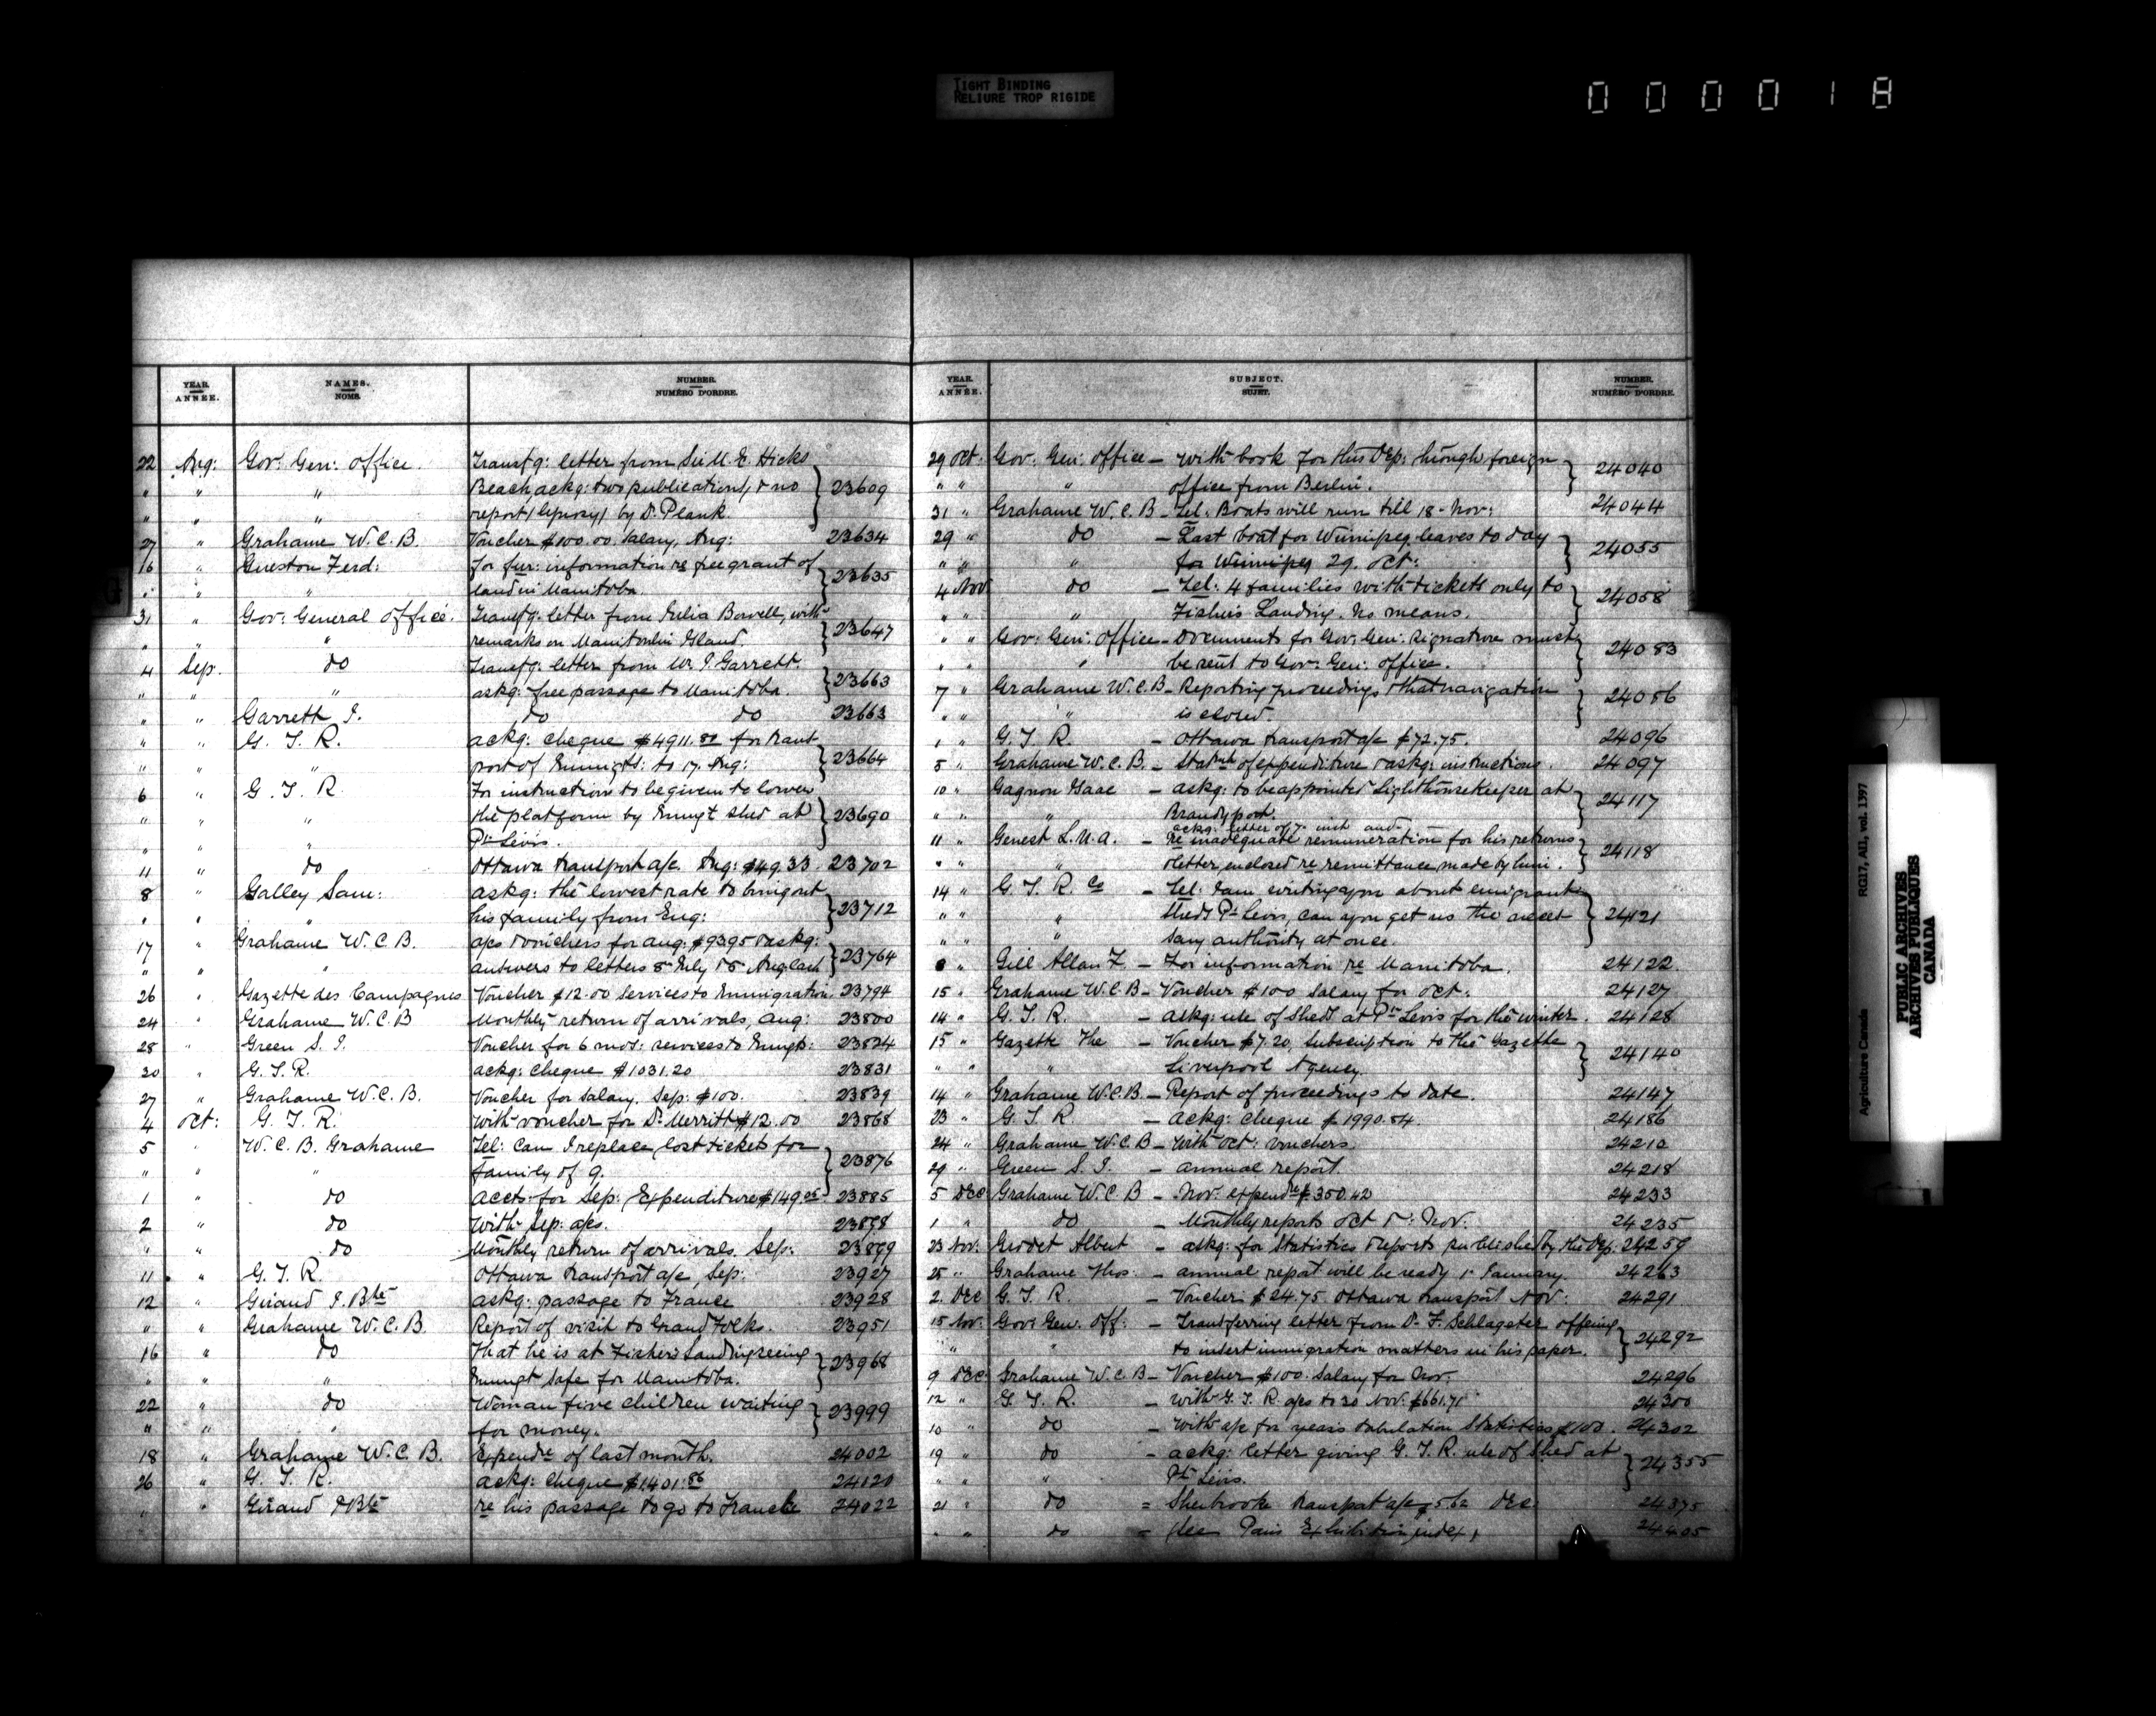 TIGHT BINDING
RELIURE TROP RIGIDE
000018
YEAR. ANNÉE. NAMES. NOMS. NUMBER. NUMÉRO D'ORDRE.
22 Aug: Gov: Gen: office. Transfg: letter from Sir M. E. Hicks
" " " Beach ackg: two publications, & no 23609
" " " report (leprosy) by Dr. Plank.
27 " Grahame W. C. B. Voucher $100.00 Salary, Aug: 23634
16 " Gueston Ferd: for fur: information re free grant of 23635
" " " land in Manitoba.
31 " Gov: General office. Transfg: letter from Julia Bowell, with 23647
" " " remarks on Manitoulin Island.
4 Sep. do Transfg: letter from W. J. Garrett. 23663
" " " askg: free passage to Manitoba.
" " Garrett J. do do 23663
" " G. T. R. ackg: cheque $4911.80 for trans 23664
" " " port of Immigts: to 17. Aug:
6 " G. T. R. For instruction to be given to lower
" " " the platform by Immigt shed at 23690
" " " Pt. Levis.
11 " do Ottawa transport a/c. Aug: $49.33. 23702
8 " Galley Sam: askg: the lowest rate to bring out 23712
" " " his family from Eng:
17 " Grahame W. C. B. a/cs & vouchers for Aug: $93.95 & askg: 23764
" " " answers to letters 5 July & 5 Aug last
26 " Gazette des Campagnes Voucher $12.00 Services to Immigration. 23794
24 " Grahame W. C. B Monthly return of arrivals, Aug: 23800
28 " Green S. J. Voucher for 6 mos: services to Immigts: 23824
30 " G. T. R. ackg: cheque $1031.20 23831
27 " Grahame W. C. B. Voucher for salary. Sep: $100. 23839
4 Oct: G. T. R. With voucher for Dr. Merritt $12.00 23868
5 " W. C. B. Grahame Tel: Can I replace lost tickets for 23876
" " " family of 9.
1 " do Accts: for Sep: Expenditure $149.05 23885
2 " do With Sep: a/cs. 23898
" " do Monthly return of arrivals. Sep: 23899
11 " G. T. R. Ottawa transport a/c, Sep: 23927
12 " Giraud J. Bte askg: passage to France 23928
" " Grahame W. C. B. Report of visit to Grand Forks. 23951
16 " do That he is at Fishers Landing seeing 23968
" " " Immigt safe for Manitoba.
22 " do Woman five children waiting 23999
" " " for money.
18 " Grahame W. C. B. Expendre of last month. 24002
26 " G. T. R. ackg: cheque $1401.86 24120
" " Giraud J Bte re his passage to go to France 24022
YEAR. ANNÉE. SUBJECT. SUJET. NUMBER. NUMÉRO D'ORDRE.
29 Oct. Gov: Gen: office – With book for this Dep: through foreign 24040
" " " office from Berlin.
31 " Grahame W. C. B – Tel: Boats will run till 18 – Nov: 24044
29 " do – Last boat for Winnipeg leaves to day 24055
" " " for Winnipeg 29. Oct:
4 Nov do – Tel: 4 families with tickets only to 24058
" " " Fishers Landing. No means.
" " Gov: Gen: Office – Documents for Gov: Gen: signature must 24083
" " " be sent to Gov: Gen: office.
7 " Grahame W. C. B – Reporting proceedings & that navigation 24086
" " " is closed.
1 " G. T R. – Ottawa transport a/c $72.75. 24096
5 " Grahame W. C. B. – Statmt of expenditure & askg: instructions. 24097
10 " Gagnon Isaac – askg: to be appointed Lighthouse Keeper at 24117
" " " Brandypot.
ackg: letter of 7. inst and
11 " Genest L. U. A. – re inadequate remuneration for his returns 24118
" " " & letter, enclosed re remittance made by him.
14 " G. T. R. Co – Tel: I am writing you about emigrant
" " " sheds Pt. Levis, can you get us the neces 24121
" " " sary authority at once.
8 " Gill Allan F. – For information re Manitoba. 24122.
15 " Grahame W. C. B – Voucher $100 Salary for Oct: 24127
14 " G. T. R. – askg: use of sheds at Pt. Levis for the winter. 24128
15 " Gazette The – Voucher $7.20, Subscription to the Gazette 24140
" " " Liverpool Agency.
14 " Grahame W. C. B. – Report of proceedings to date. 24147
23 " G. T. R – ackg: cheque $1990.84. 24186
24 " Grahame W. C. B – With Oct: vouchers. 24210
29 " Green S. J. – annual report. 24218
5 Dec Grahame W. C. B – Nov. expendre $350.42 24233
1 " do – Monthly reports Oct & Nov. 24235
23 Nov: Geodet Albert – askg: for Statistics & reports published by the Dep. 24259
25 " Grahame Thos: – annual report will be ready 1st January. 24263
2. Dec G. T. R. – Voucher $24.75 Ottawa transport Nov: 24291
15 Nov. Gov: Gen. Off: – Transferring letter from Dr. F. Schlageter offering 24292
" " " to insert immigration matters in his paper.
9 Dec. Grahame W. C. B – Voucher $100. Salary for Nov. 24296
12 " G. T. R. – With G. T. R. a/cs to 30 Nov: $661.71 24300
10 " do – With a/c for years tabulation Statistics $100. 24302
19 " do – ackg: letter giving G. T. R. use of shed at 24355
" " " Pt. Levis.
21 " do = Sherbrooke transport a/c $5.62 Dec. 24375
" " do = (See Paris Exhibition index) 24405
Agriculture Canada RG17, AII, vol. 1397
PUBLIC ARCHIVES
ARCHIVES PUBLIQUES
CANADA